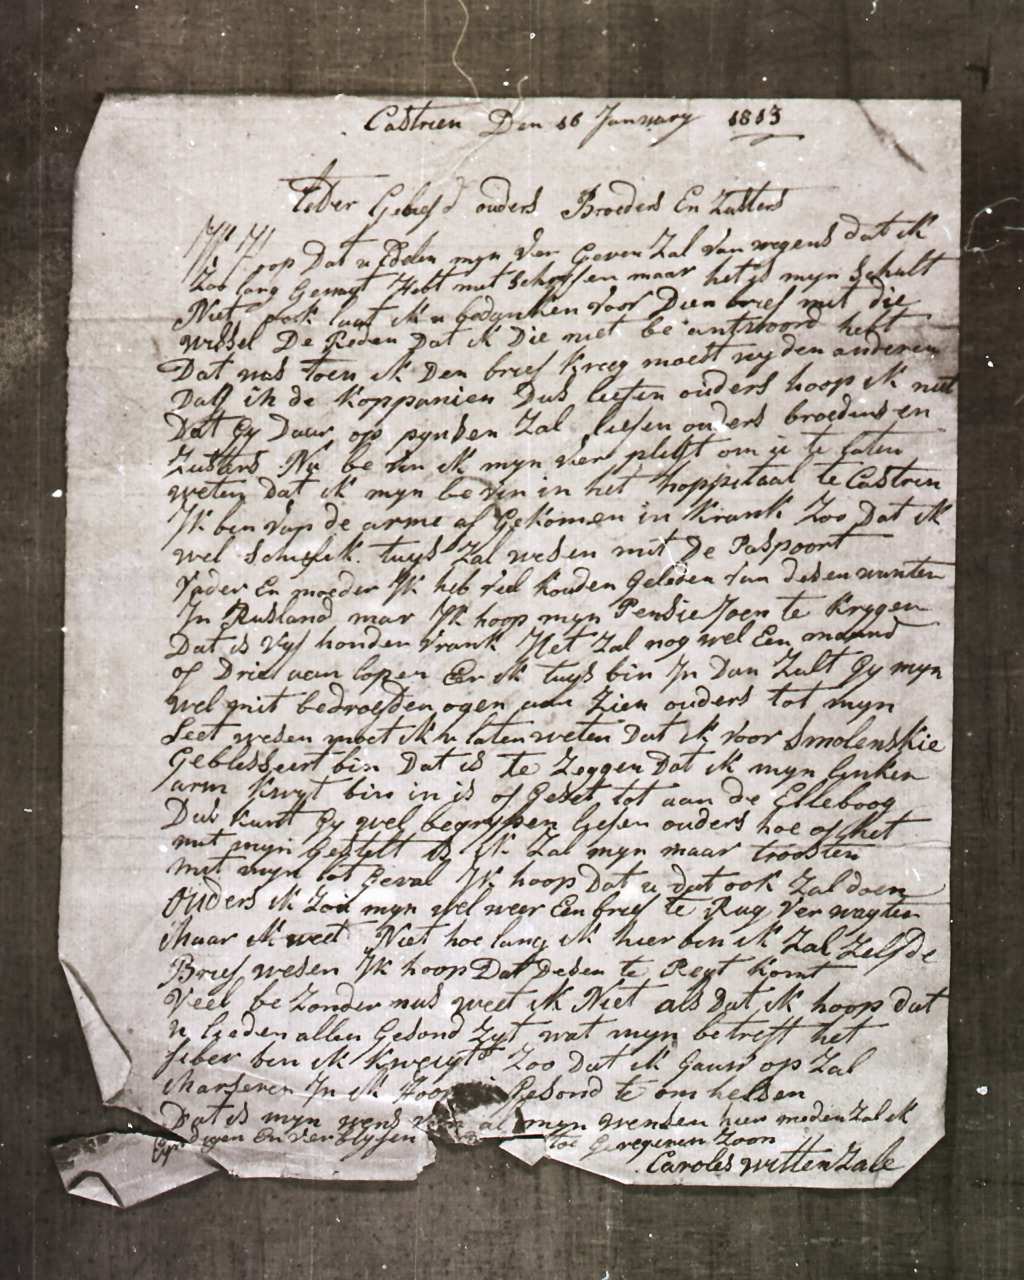 Castrien Den 16 January 1813
Teder Gelief d ouders Broeders En Zusters
oop Dat u Edelen myn Ver Geven Zal Van wegens dat ik
Zoo lang Gewagt Hebt met Schryfen maar het is myn Schult
Niet ook laat ik u bedanken voor Den brief met die
wissel De Reden Dat ik Die niet be antwoord hebt
Dat was toen ik Den brief kreeg moest wy den anderen
Dag in de Koppanien Dus liefen ouders hoop ik niet
Dat Gy Daar op pynsen Zal liefen ouders broeders en
Zusters Nu be vin ik myn ver pligt om u te laten
weten Dat ik myn be vin in het hoppitaal te Castrin
Ik ben van de arme af Gekomen in Krank Zoo Dat ik
wel schielik tuys Zal wesen met De Paspoort
Vader En moeder Ik heb viel kouden Geleden van desen wunter
In Rusland mar Ik hoop myn Pensie Joen te krygen
Dat is Vyf honden Vrank Het Zal nog wel Een maand
of Drie aan lopen Eer ik tuys bin In Dan Zult Gy myn
wel mit bedroefden ogen aan Zien ouders tot myn
Leet wesen moet ik u laten weten Dat ik Voor Smolenskie
Geblesseert bin Dat is te Zeggen Dat ik myn linken
arm kwyt bin in is of Geset tot aan de Elleboog
Dus kunt Gy wel begrypen liefen ouders hoe of het
mit myn Gestelt is ik Zal myn maar troosten
met myn lot Geval Ik hoop Dat u dat ook Zal doen
Ouders ik Zou myn wel weer Een brief te Rug Ver wagten
Maar ik weet Niet hoe lang ik hier bin ik Zal Zelf de
Brief wesen Ik hoop Dat Desen te Regt komt
Veel be Zonder nus weet ik Niet als Dat ik hoop dat
u lieden allen Gesond Zyt wat myn betreft het
fiber bin ik kweyt Zoo Dat ik Gauw op Zal
Marseren In ik Hoop Gesond te om helsen
Dat is myn wens van al myn wensen hier meden Zal ik
digen En Verblyfen toe Geregenen Zoon
Caroles witten Zale